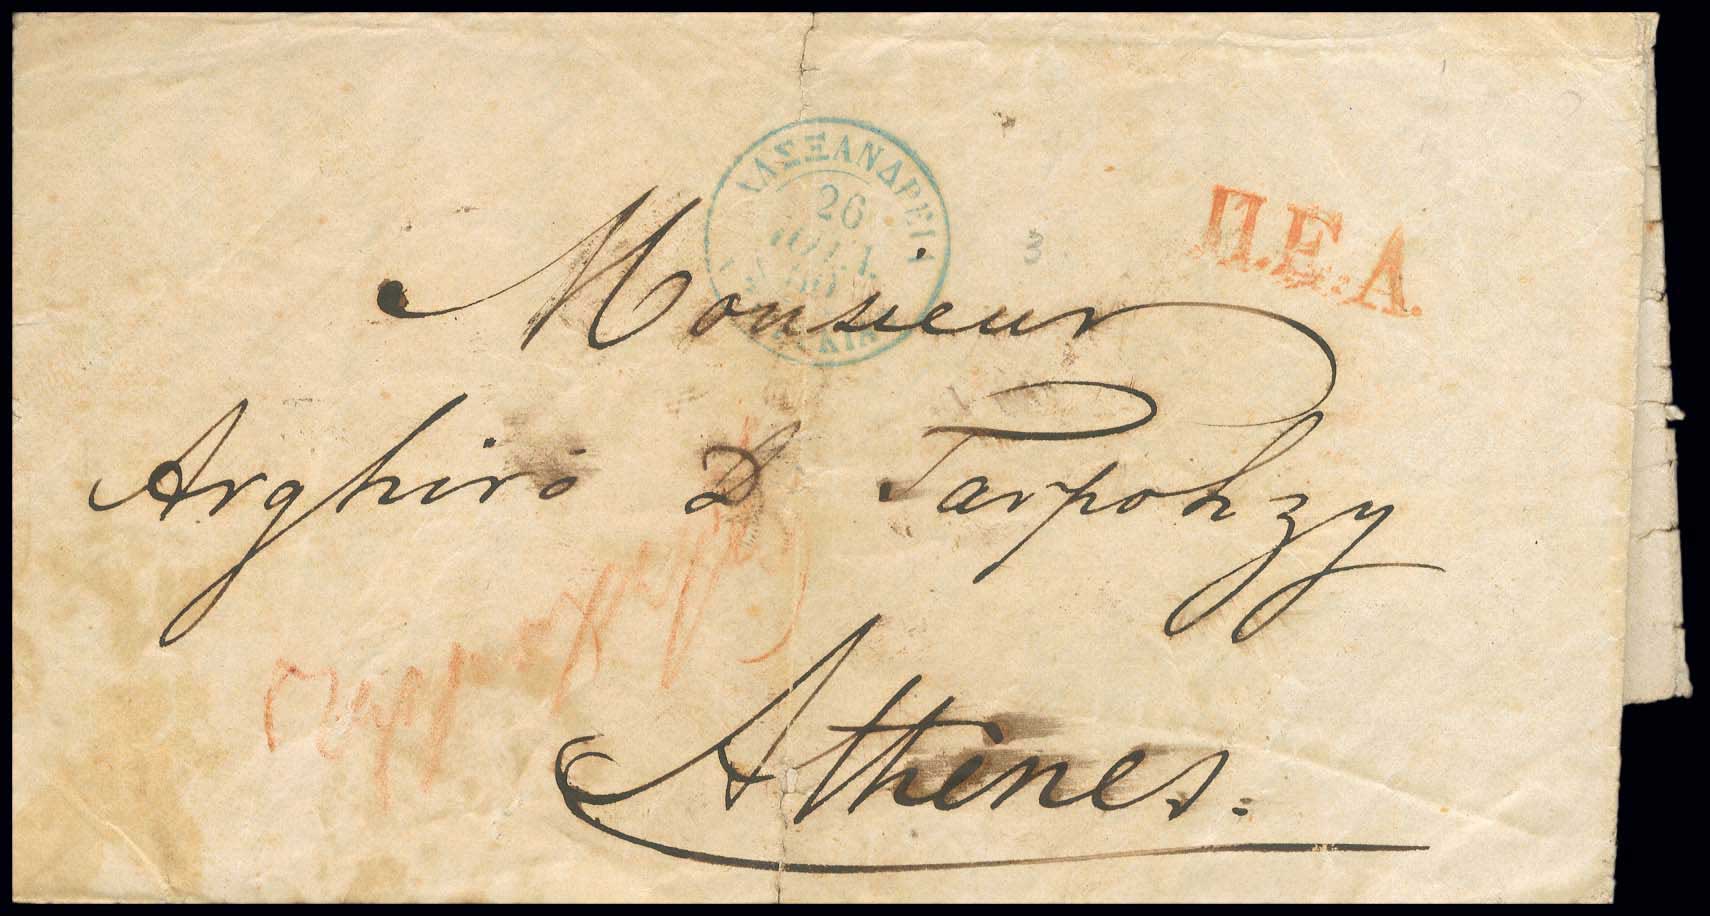 ΑΛΕΞΑΝΔΡΕΙΑ
26
ΙΟΥΛ.
3
Π.Ε.Α.
Monsieur
Arghiró D Tarpohzy
Athènes.